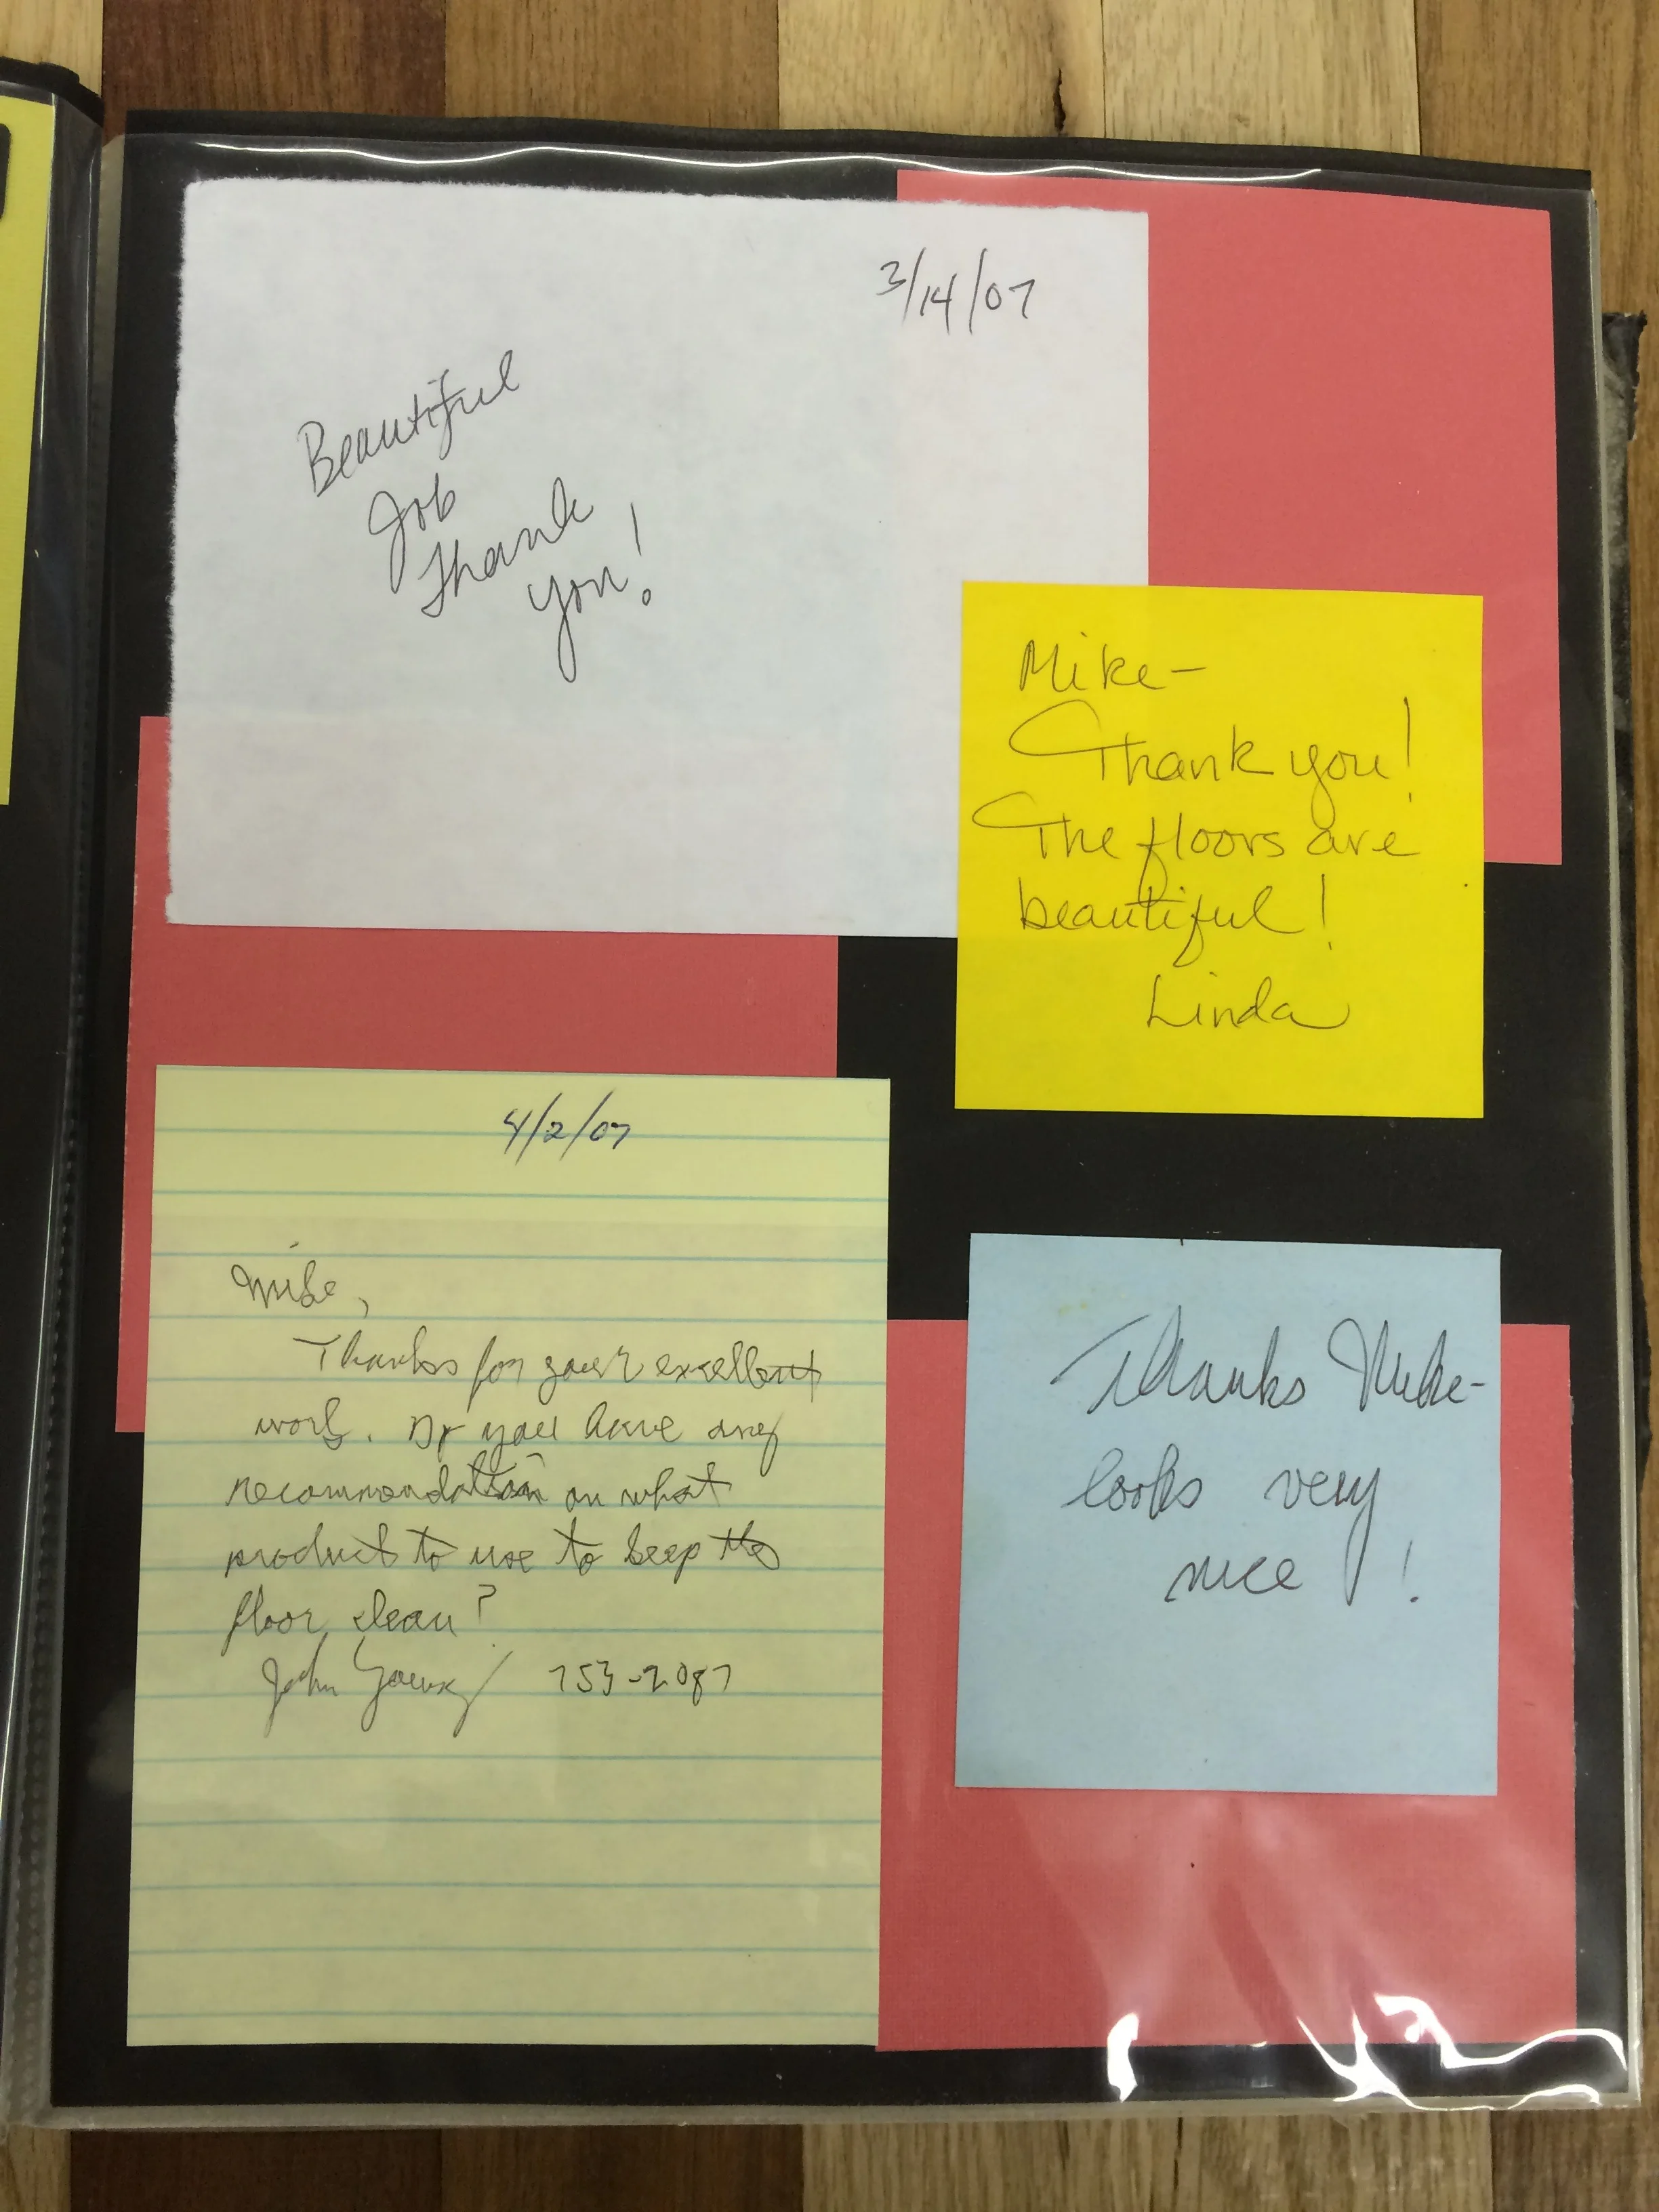 3/14/07
Beautiful
Job
Thank
you!
Mike-
Thank you!
The floors are
beautiful!
Linda
4/2/07
Mike,
Thanks for your excellent
work. Do you have any
recommendation on what
product to use to keep the
floor clean?
John Young 753-2087
Thanks Mike-
looks very
nice!